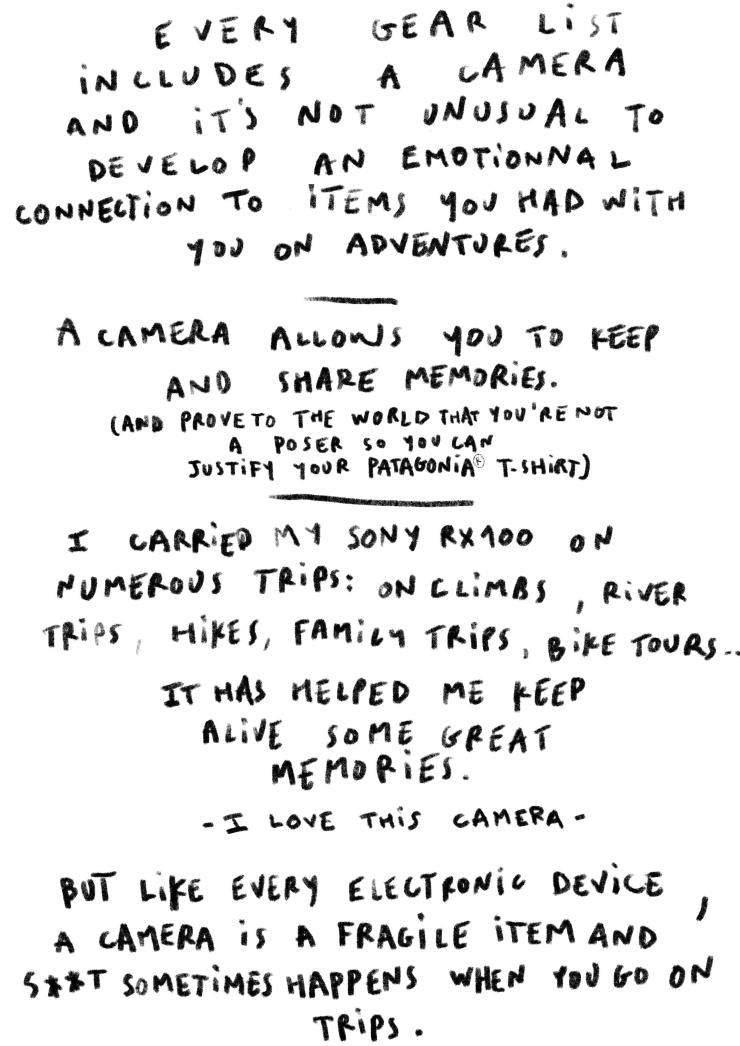 EVERY GEAR LiST
iNCLUDES A CAMERA
AND iT'S NOT UNUSUAL TO
DEVELOP AN EMOTiONNAL
CONNECTiON TO iTEMS YOU HAD WiTH
YOU ON ADVENTURES.
A CAMERA ALLOWS YOU TO KEEP
AND SHARE MEMORiES.
(AND PROVE TO THE WORLD THAT YOU'RE NOT
A POSER SO YOU CAN
JUSTiFY YOUR PATAGONiA® T-SHiRT)
I CARRiED MY SONY RX100 ON
NUMEROUS TRiPS: ON CLiMBS, RiVER
TRiPS, HiKES, FAMiLY TRiPS, BiKE TOURS..
IT HAS HELPED ME KEEP
ALiVE SOME GREAT
MEMORiES.
- I LOVE THiS CAMERA -
BUT LiKE EVERY ELECTRONiC DEViCE,
A CAMERA iS A FRAGiLE iTEM AND
S**T SOMETiMES HAPPENS WHEN YOU GO ON
TRiPS.